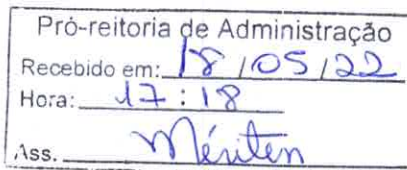 Pró-reitoria de Administração
Recebido em: 18/05/22
Hora: 17:18
Ass.